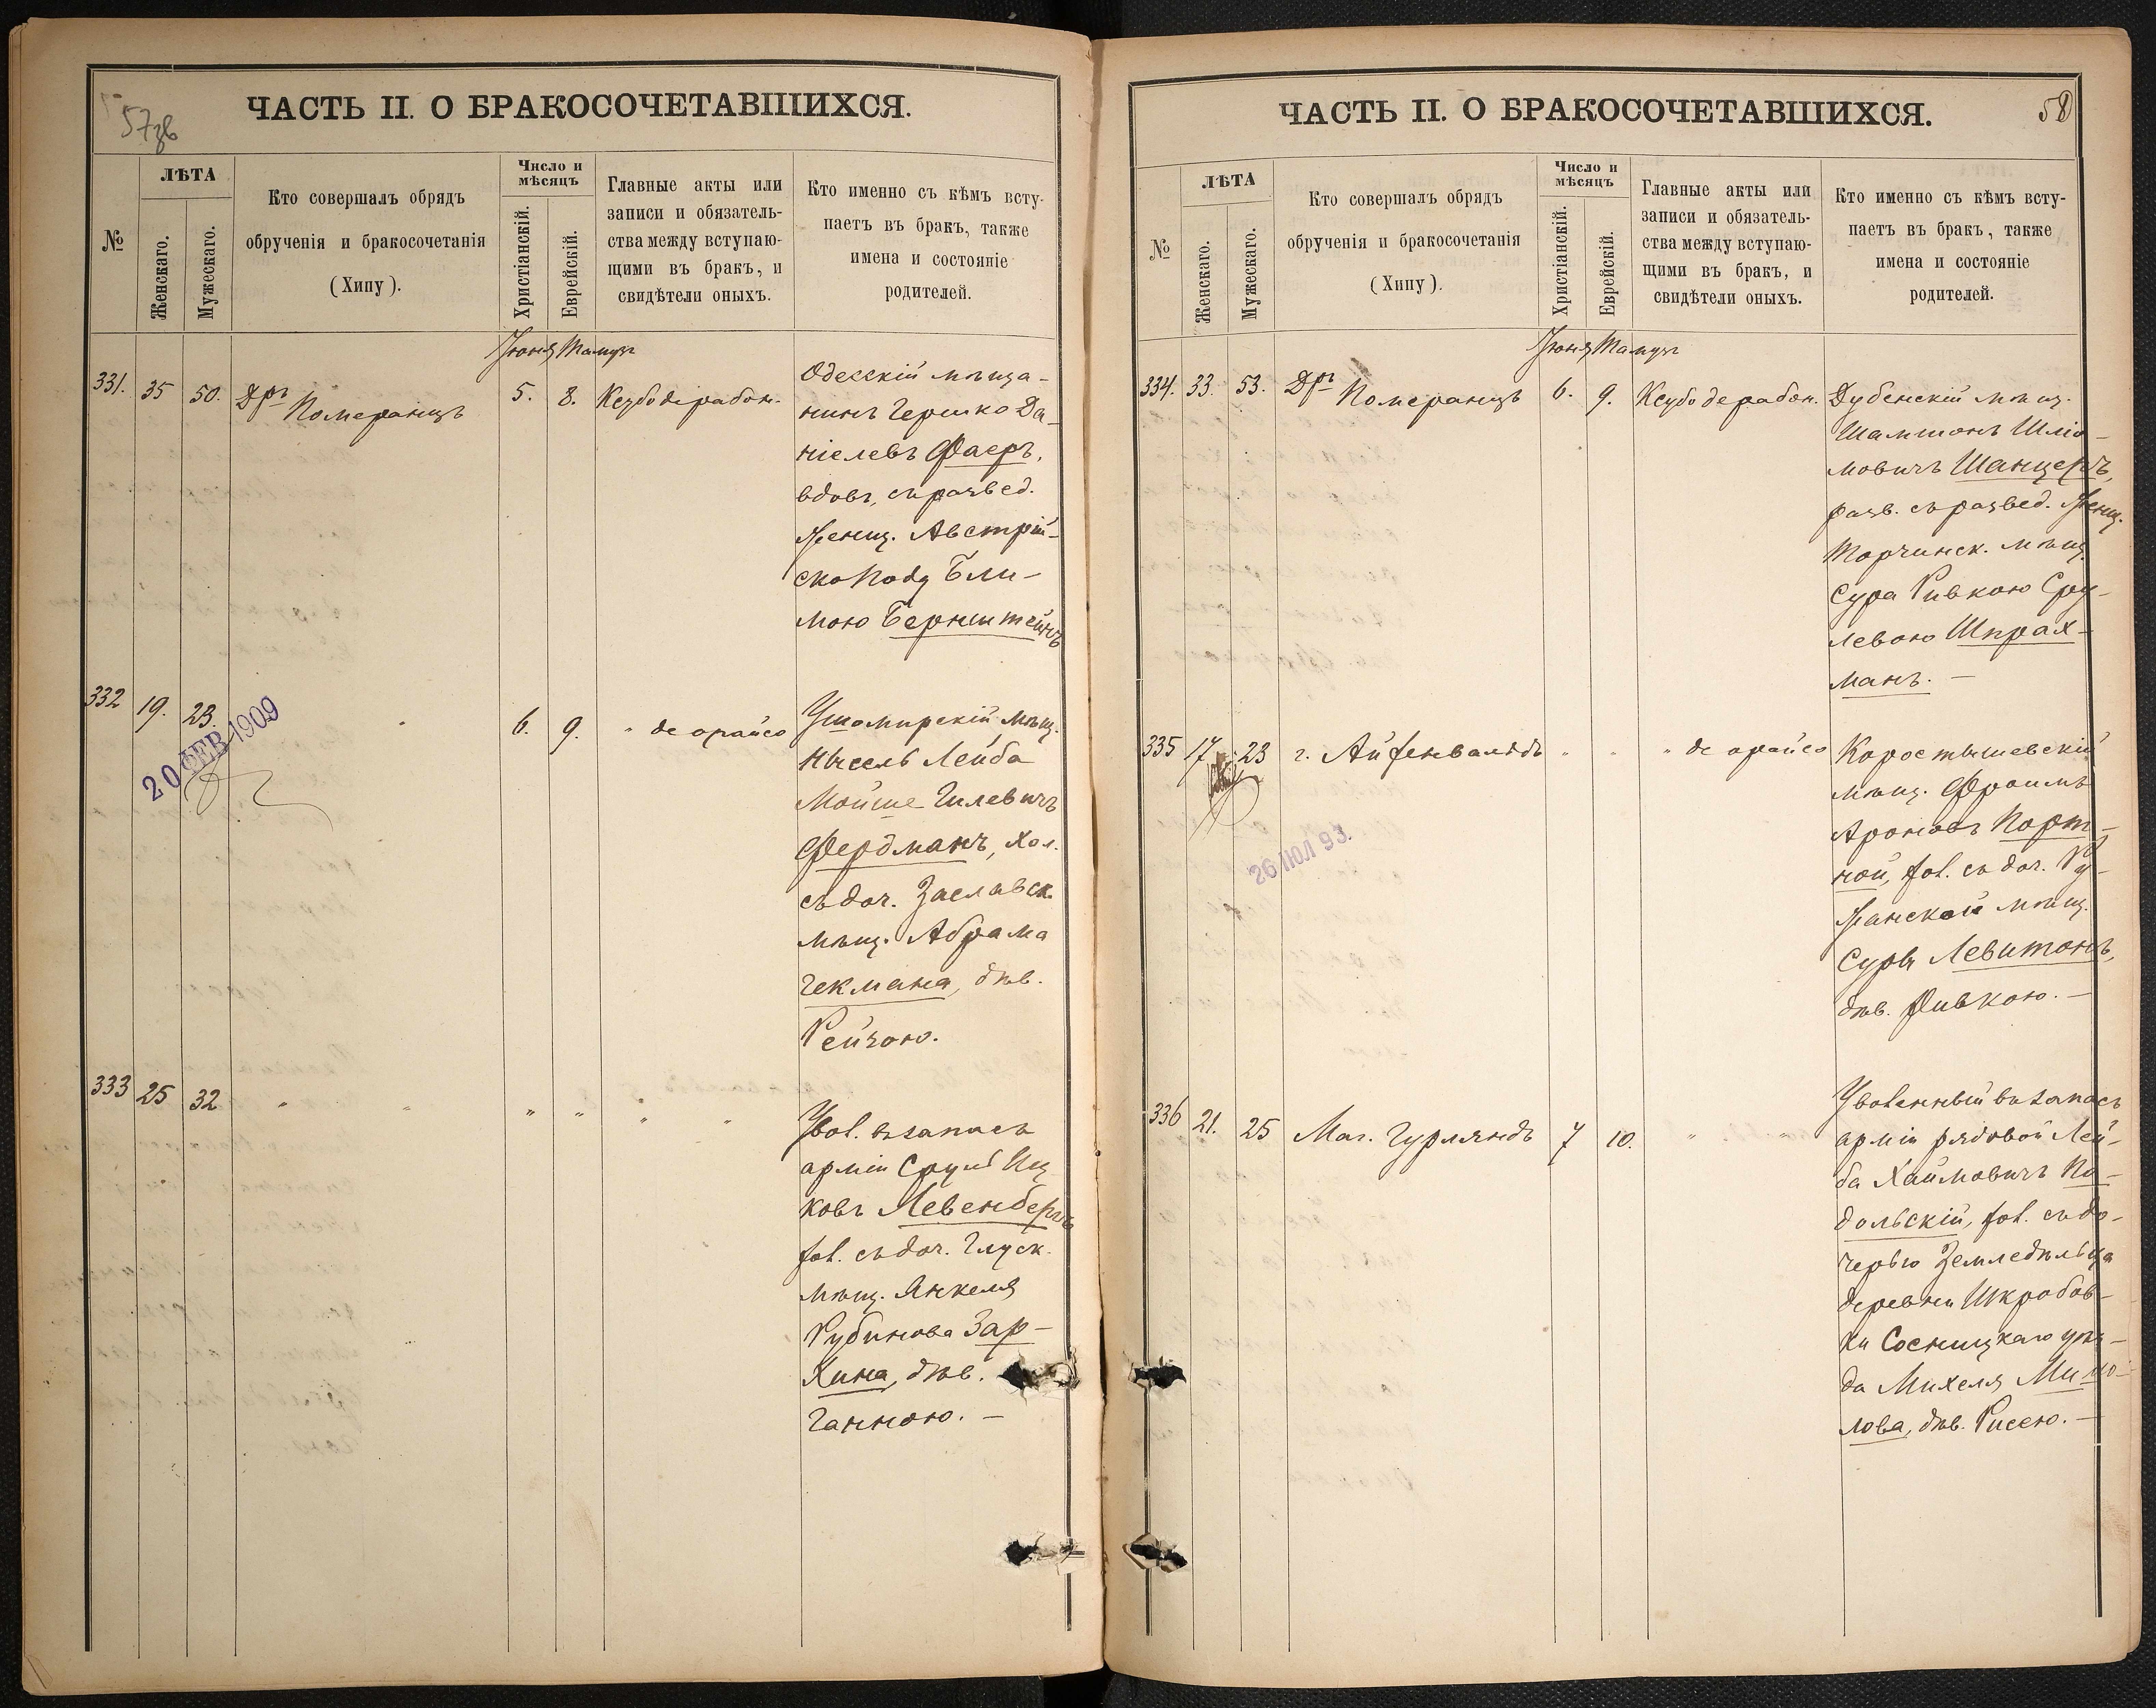 57зв
ЧАСТЬ II. О БРАКОСОЧЕТАВШИХСЯ.
№
ЛѢТА
Женскаго.
Мужескаго.
Кто совершалъ обрядъ
обрученія и бракосочетанія
(Хипу).
Число и
мѣсяцъ
Христіанскій.
Еврейскій.
Главные акты или
записи и обязатель-
ства между вступаю-
щими въ бракъ, и
свидѣтели оныхъ.
Кто именно съ кѣмъ всту-
паетъ въ бракъ, также
имена и состояніе
родителей.
Іюня Тамузъ
331. 35 50. Дръ Померанцъ 5. 8. Ксубо дерабон.
Одесскій мѣща-
нинъ Гершко Да-
ніелевъ Фаеръ,
вдов., съ развед.
женщ. Австрій-
ско под. Бли-
мою Бернштейнъ
332 19. 23. 6. 9. " де орайсо
20 ФЕВ 1909
Ушомирскій мѣщ.
Нысель Лейба
Мойше Гилевичъ
Фердманъ, хол.
съ доч. Заславск.
мѣщ. Абрама
Гекмана, дѣв.
Рейзою.
333 25 32 " " " " " "
Увол. въ запасъ
арміи Сруль Иц
ковъ Левенбергъ
хол. съ доч. Глуск.
мѣщ. Янкеля
Рубинова Зар-
хина, дѣв.
Ганною. —
58
ЧАСТЬ II. О БРАКОСОЧЕТАВШИХСЯ.
№
ЛѢТА
Женскаго.
Мужескаго.
Кто совершалъ обрядъ
обрученія и бракосочетанія
(Хипу).
Число и
мѣсяцъ
Христіанскій.
Еврейскій.
Главные акты или
записи и обязатель-
ства между вступаю-
щими въ бракъ, и
свидѣтели оныхъ.
Кто именно съ кѣмъ всту-
паетъ въ бракъ, также
имена и состояніе
родителей.
Іюня Тамузъ
334. 33. 53. Дръ Померанцъ 6. 9. Ксубо дерабон.
Дубенскій мѣщ.
Шамшонъ Шліо-
мовичъ Шанцеръ,
разв. съ развед. женщ.
Торчинск. мѣщ.
Сура Ривкою Сру-
левою Шпрах-
манъ. —
335 17 23 г. Айзенвальдъ " " " де орайсо
26 ІЮЛ 93.
Коростышевскій
мѣщ. Фроимъ
Ароновъ Порт-
ной, хол. съ доч. Ру-
жанской мѣщ.
Суры Левитонъ,
дѣв. Ривкою. —
336 21. 25 Маг. Гурляндъ 7 10. " "
Уволенный въ запасъ
арміи рядовой Лей-
ба Хаимовичъ По-
дольскій, хол. съ до-
черью Земледѣльца
деревни Шкробов-
ки Сосницкаго уѣз-
да Михеля Мило-
лова, дѣв. Рисею. —